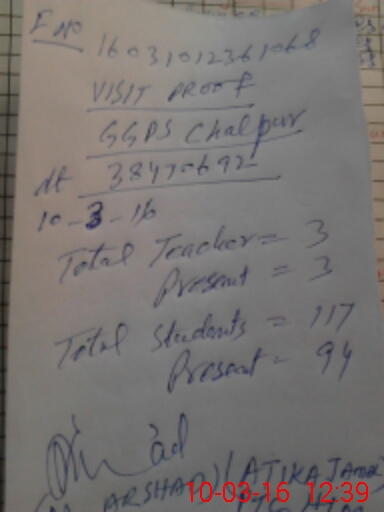 F No 16031012361068
VISIT PROOF
GGPS Chalpur
38470692
dt
10-3-16
Total Teacher = 3
Present = 3
Total Students = 117
Present = 94
ARSHAD) (ATIKA
10-03-16 12:39